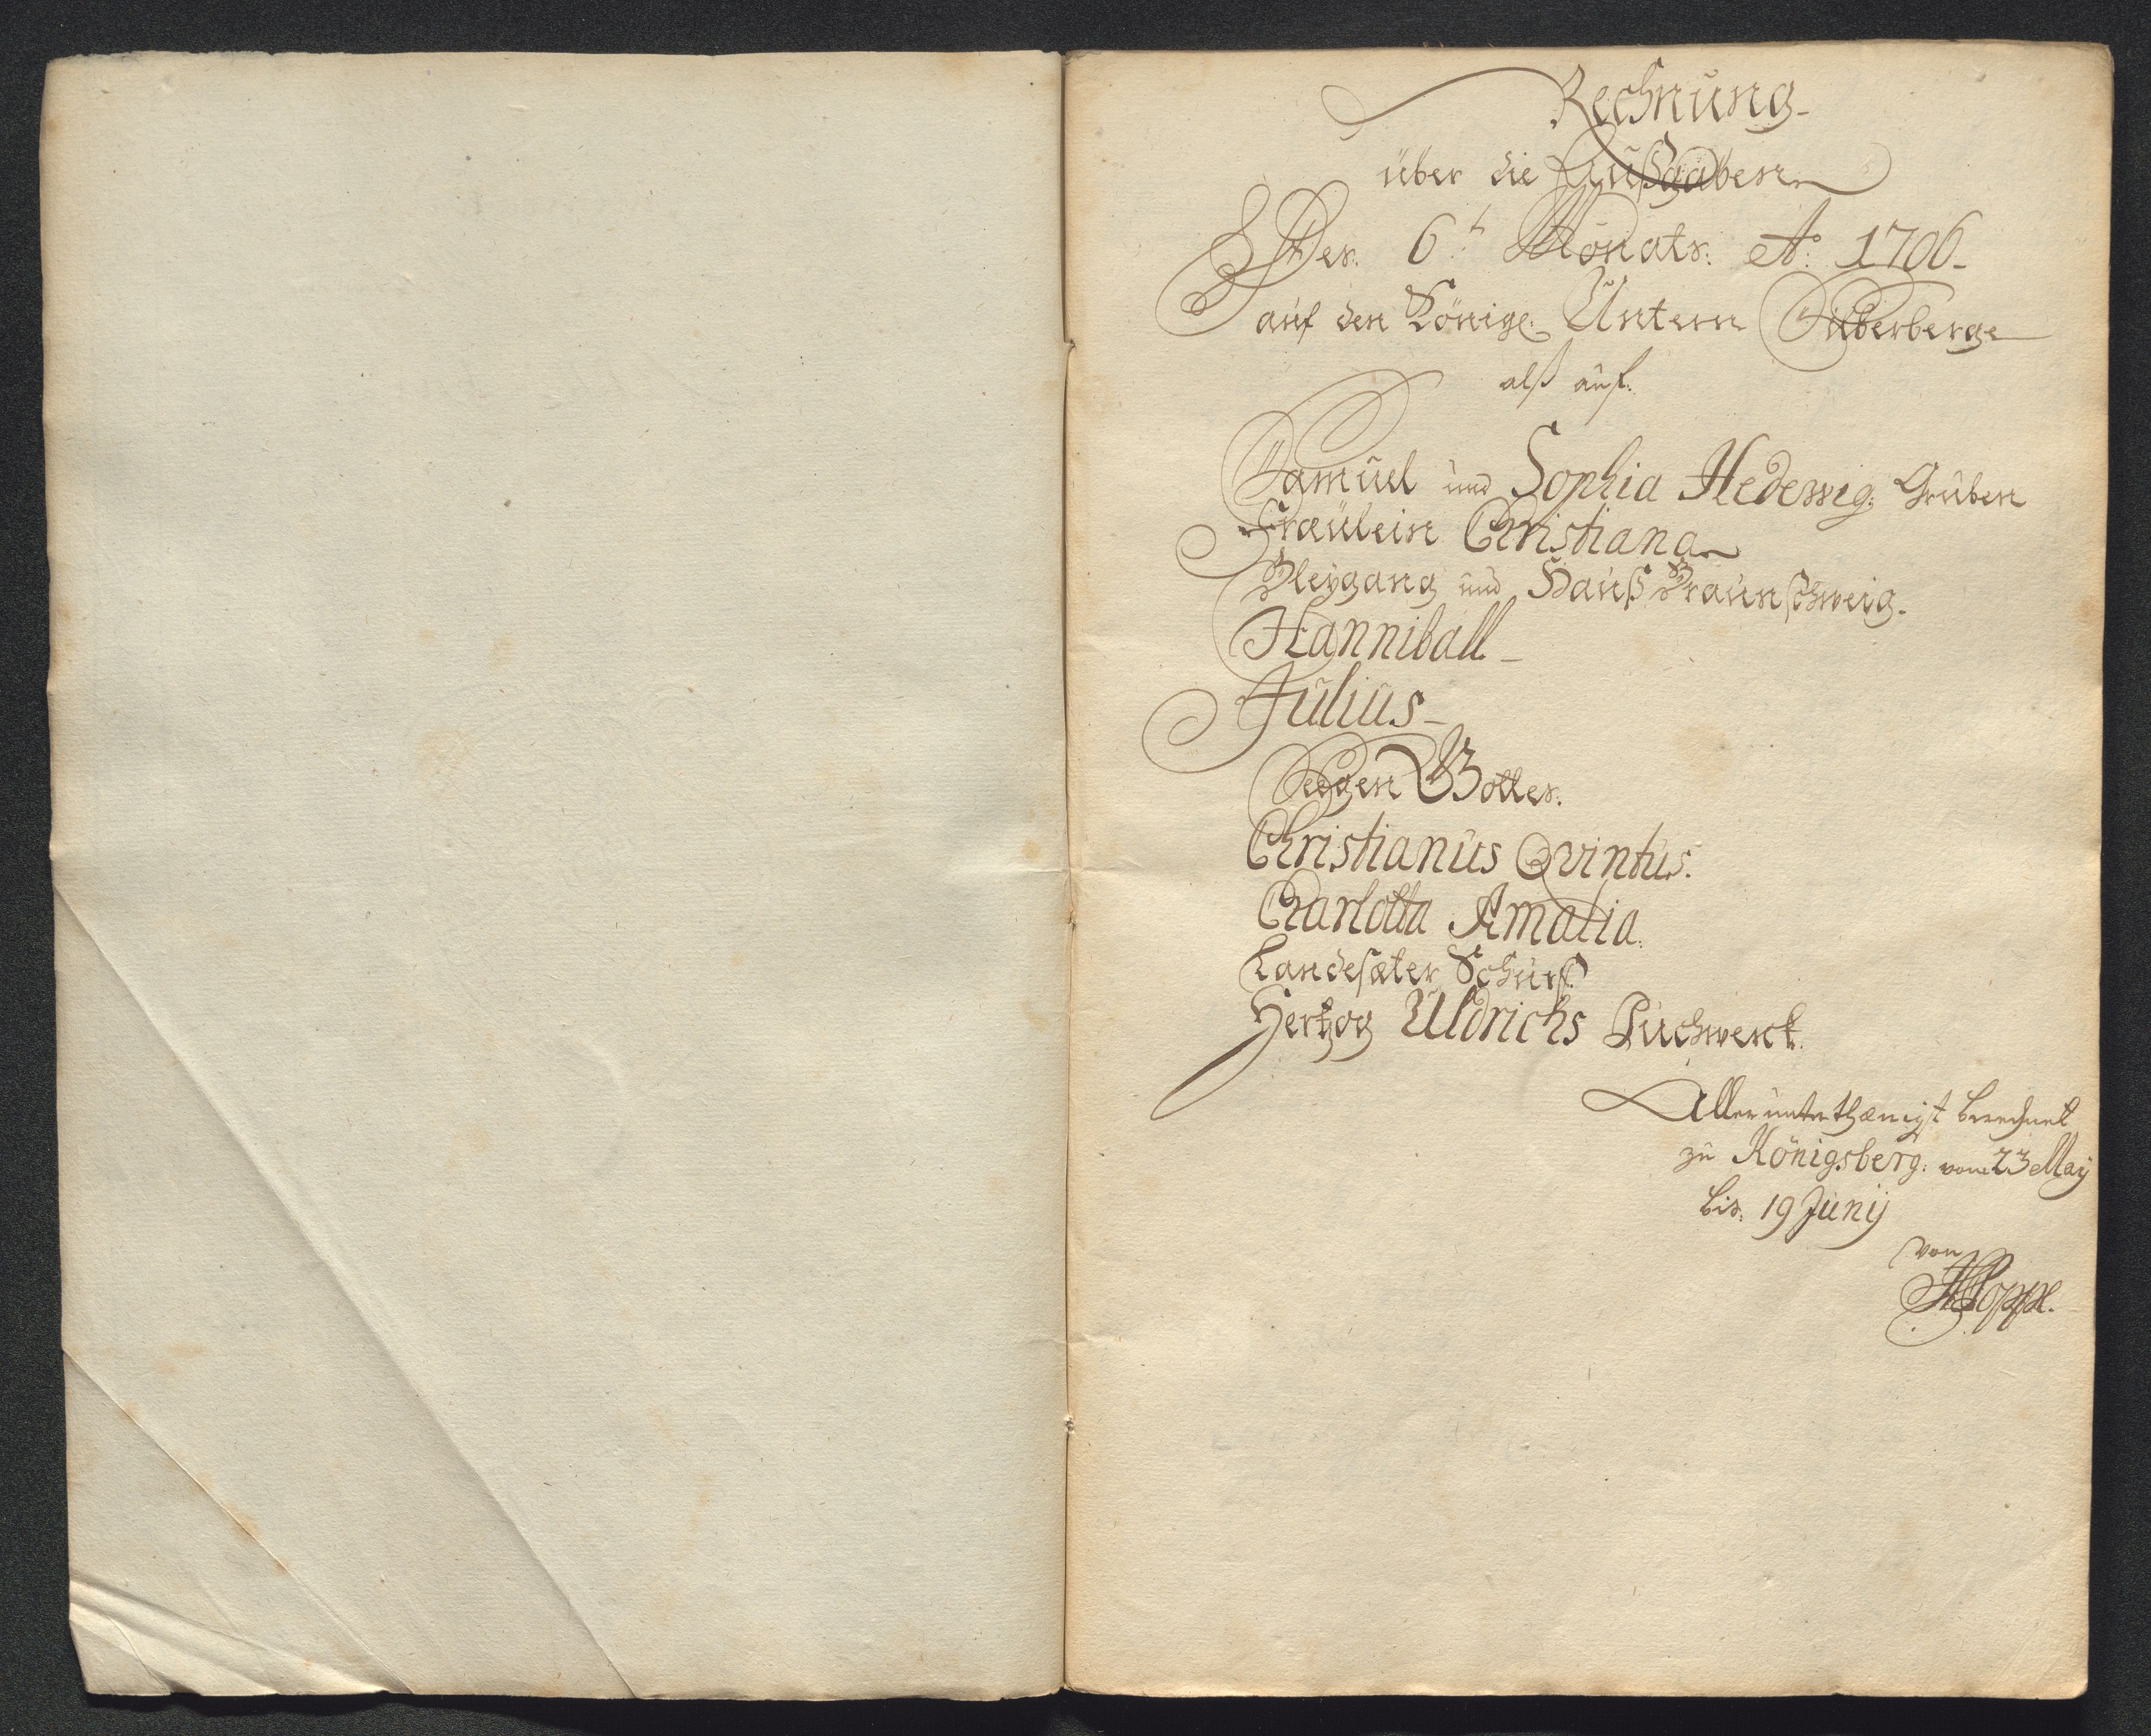 Rechnung
über die Außgaben
Des 6t Monats A: 1706
auf den Königl: Untern Silberberge
alß auf:
Samuel und Sophia Hedewig: Gruben
Fraülein Christiana
Bleygang und Hauß Braunschweig.
Hanniball
Julius
Seegen Gottes.
Christianus Qvintus.
Charlotta Amalia.
Landesæter Schurf.
Hertzog Uldrichs Puchwerck.
Allerunterthænigst berechnet
zu Königsberg: vom 23 May
bis: 19 Junij
von
Hoppe.